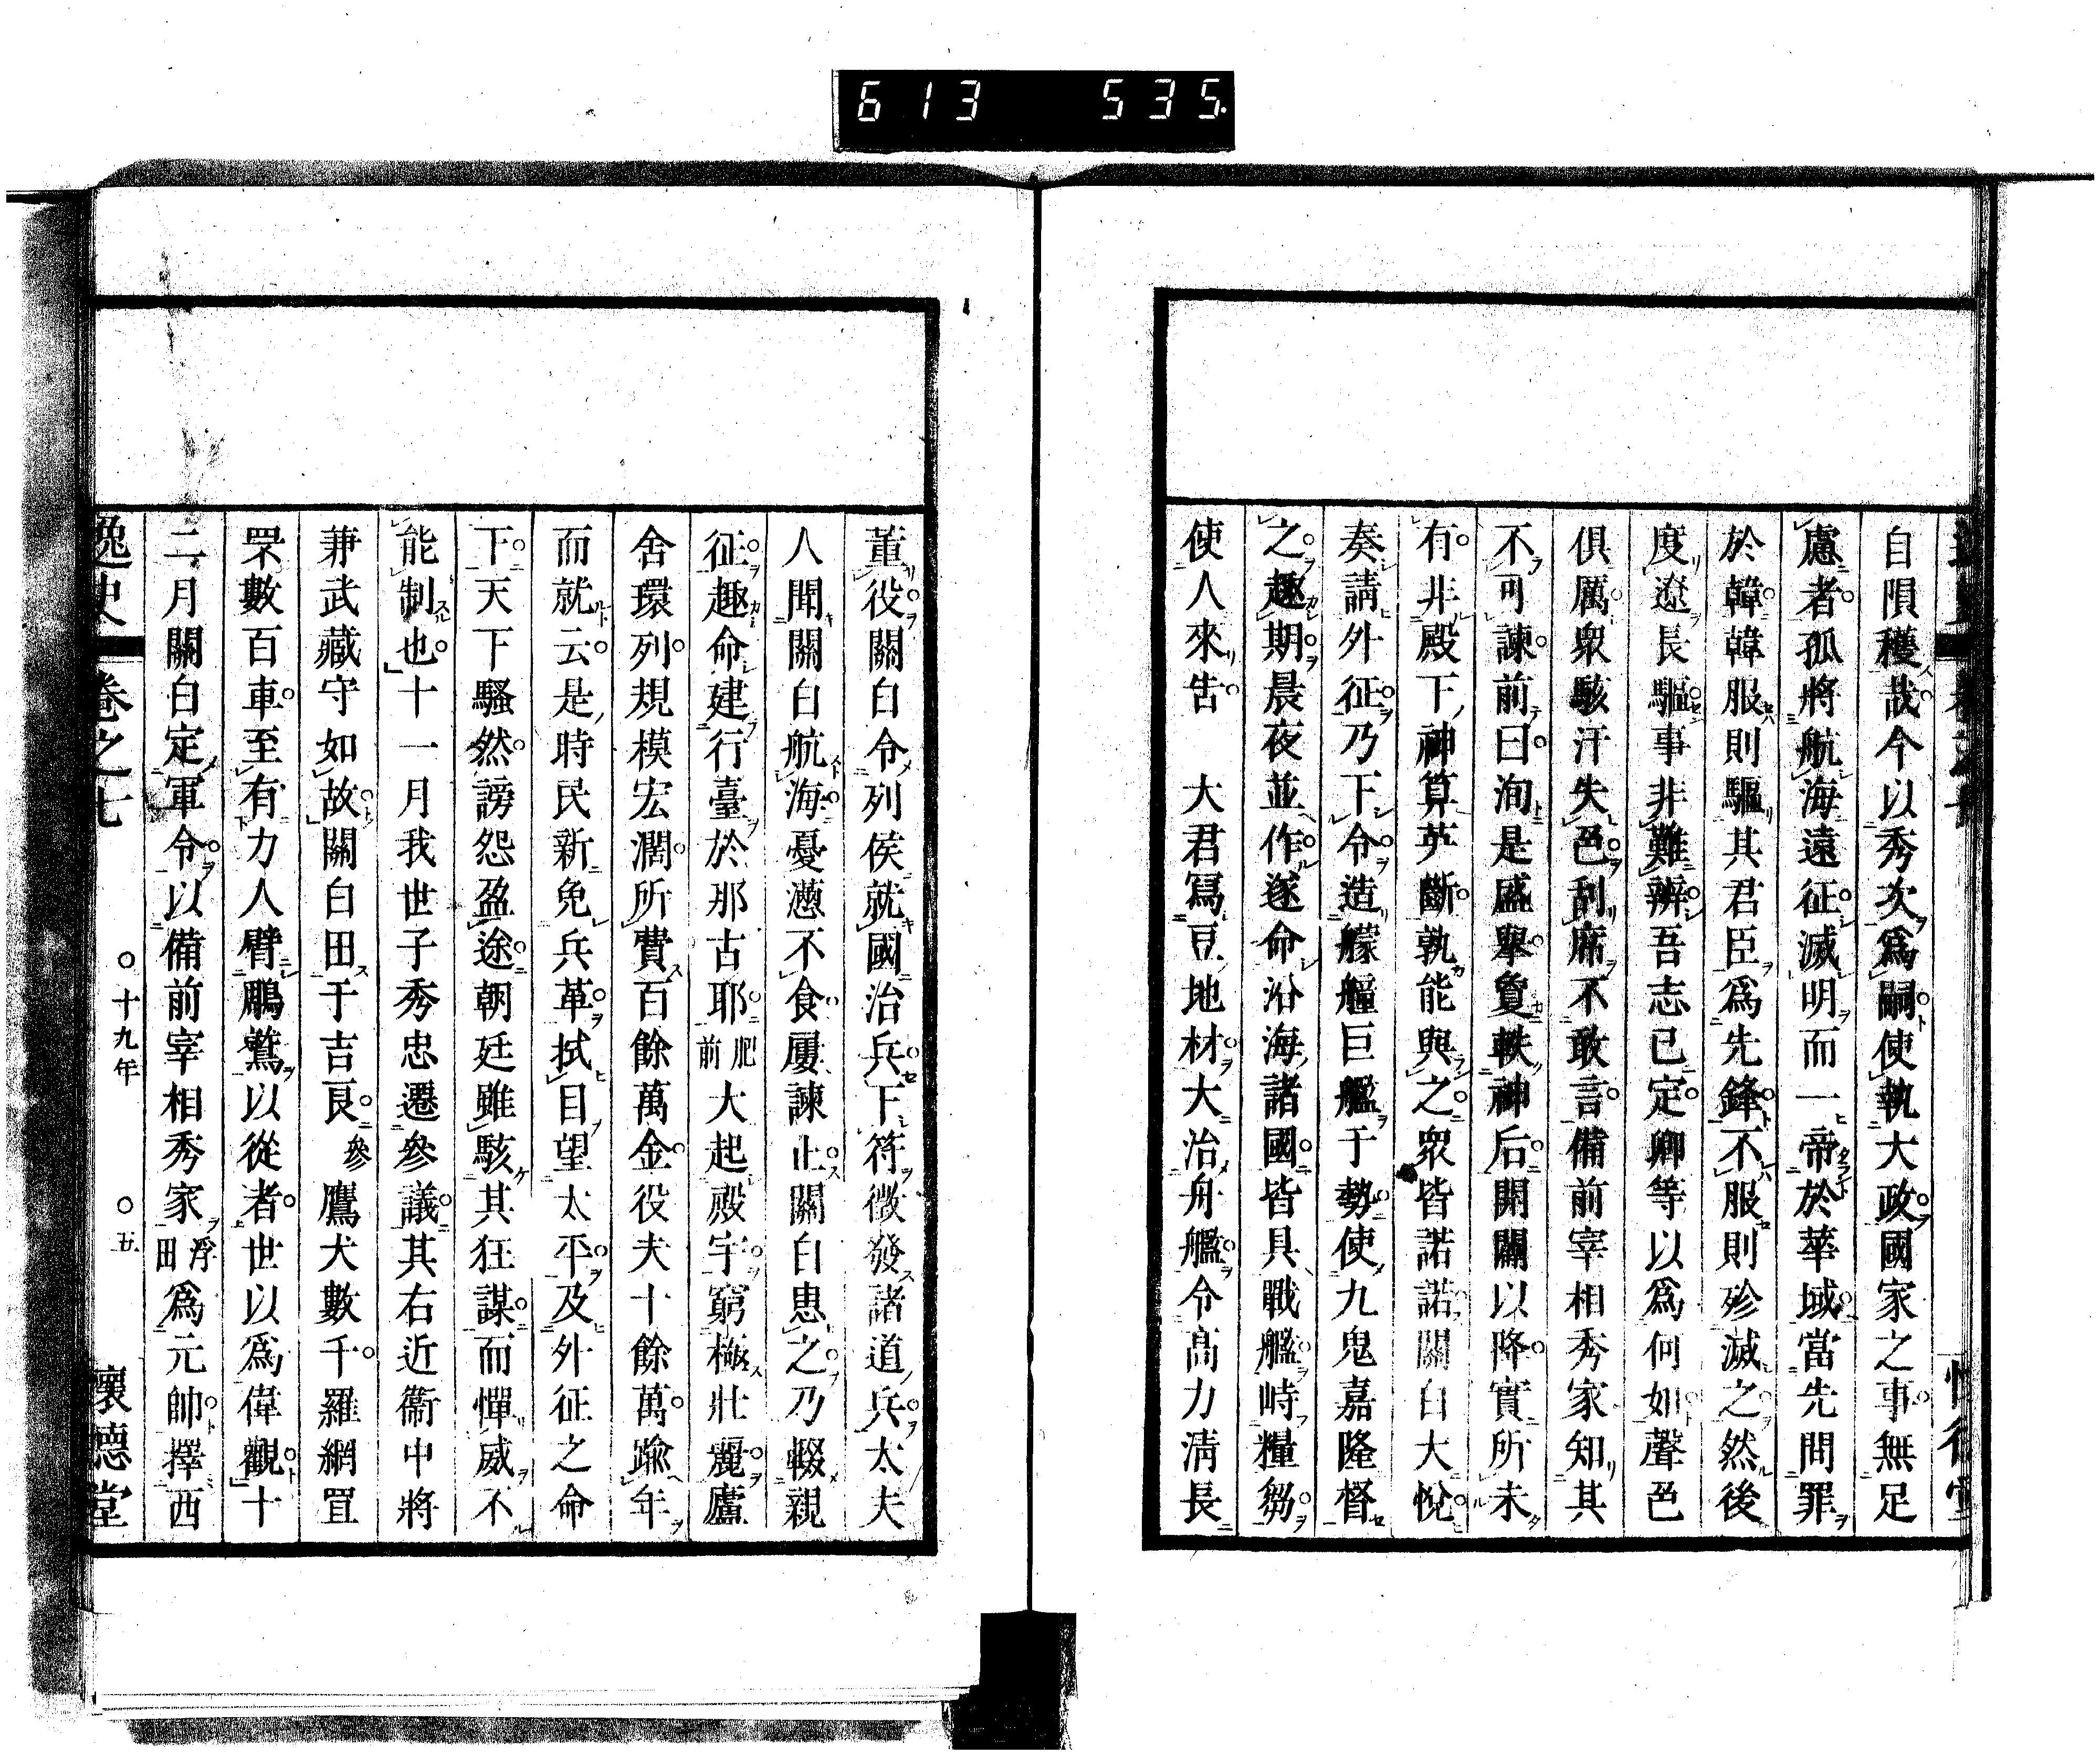 613 535.
自隕穫哉今以秀次爲嗣使執大政國家之事無足
慮者孤將航海遠征滅明而一帝於華域當先問罪
於韓韓服則驅其君臣爲先鋒不服則殄滅之然後
度遼長驅事非難辨吾志已定卿等以爲何如聲色
俱厲衆駭汗失色刮席不敢言備前宰相秀家知其
不可諫前曰洵是盛擧覽軼神后開闢以降實所未
有非殿下神算英斷孰能與之衆皆諾諾關白大悅
奏請外征乃下令造艨艟巨艦于勢使九鬼嘉隆督
之趣期晨夜並作遂命沿海諸國皆具戰艦峙糧芻
使人來吿 大君冩豆地材大治舟艦令高力淸長
董役關白令列侯就國治兵下符徵發諸道兵太夫
人聞關白航海憂懣不食屢諫止關白患之乃輟親
征趣命建行臺於那古耶肥前大起殿宇窮極壯麗廬
舍環列規模宏濶所費百餘萬金役夫十餘萬踰年
而就云是時民新免兵革拭目望太平及外征之命
下天下騷然謗怨盈途朝廷雖駭其狂謀而憚威不
能制也十一月我世子秀忠遷參議其右近衞中將
兼武藏守如故關白田于吉良參鷹犬數千羅網罝
罘數百車至有力人臂鵰鷲以從者世以爲偉觀十
二月關白定軍令以備前宰相秀家浮田爲元帥擇西
逸史 卷之七 ○十九年 ○五 懷德堂